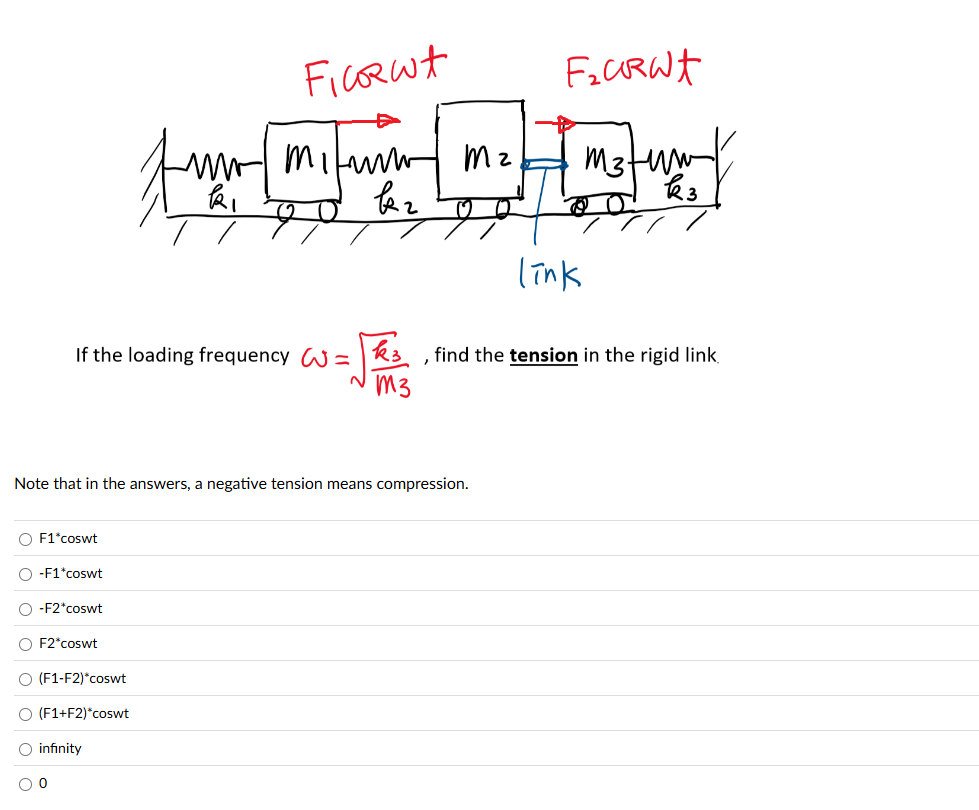 F₁cosωt F₂cosωt
m₁ m₂ m₃
k₁ k₂ k₃
link
If the loading frequency ω = √(k₃/m₃) , find the tension in the rigid link.
Note that in the answers, a negative tension means compression.
F1*coswt
-F1*coswt
-F2*coswt
F2*coswt
(F1-F2)*coswt
(F1+F2)*coswt
infinity
0